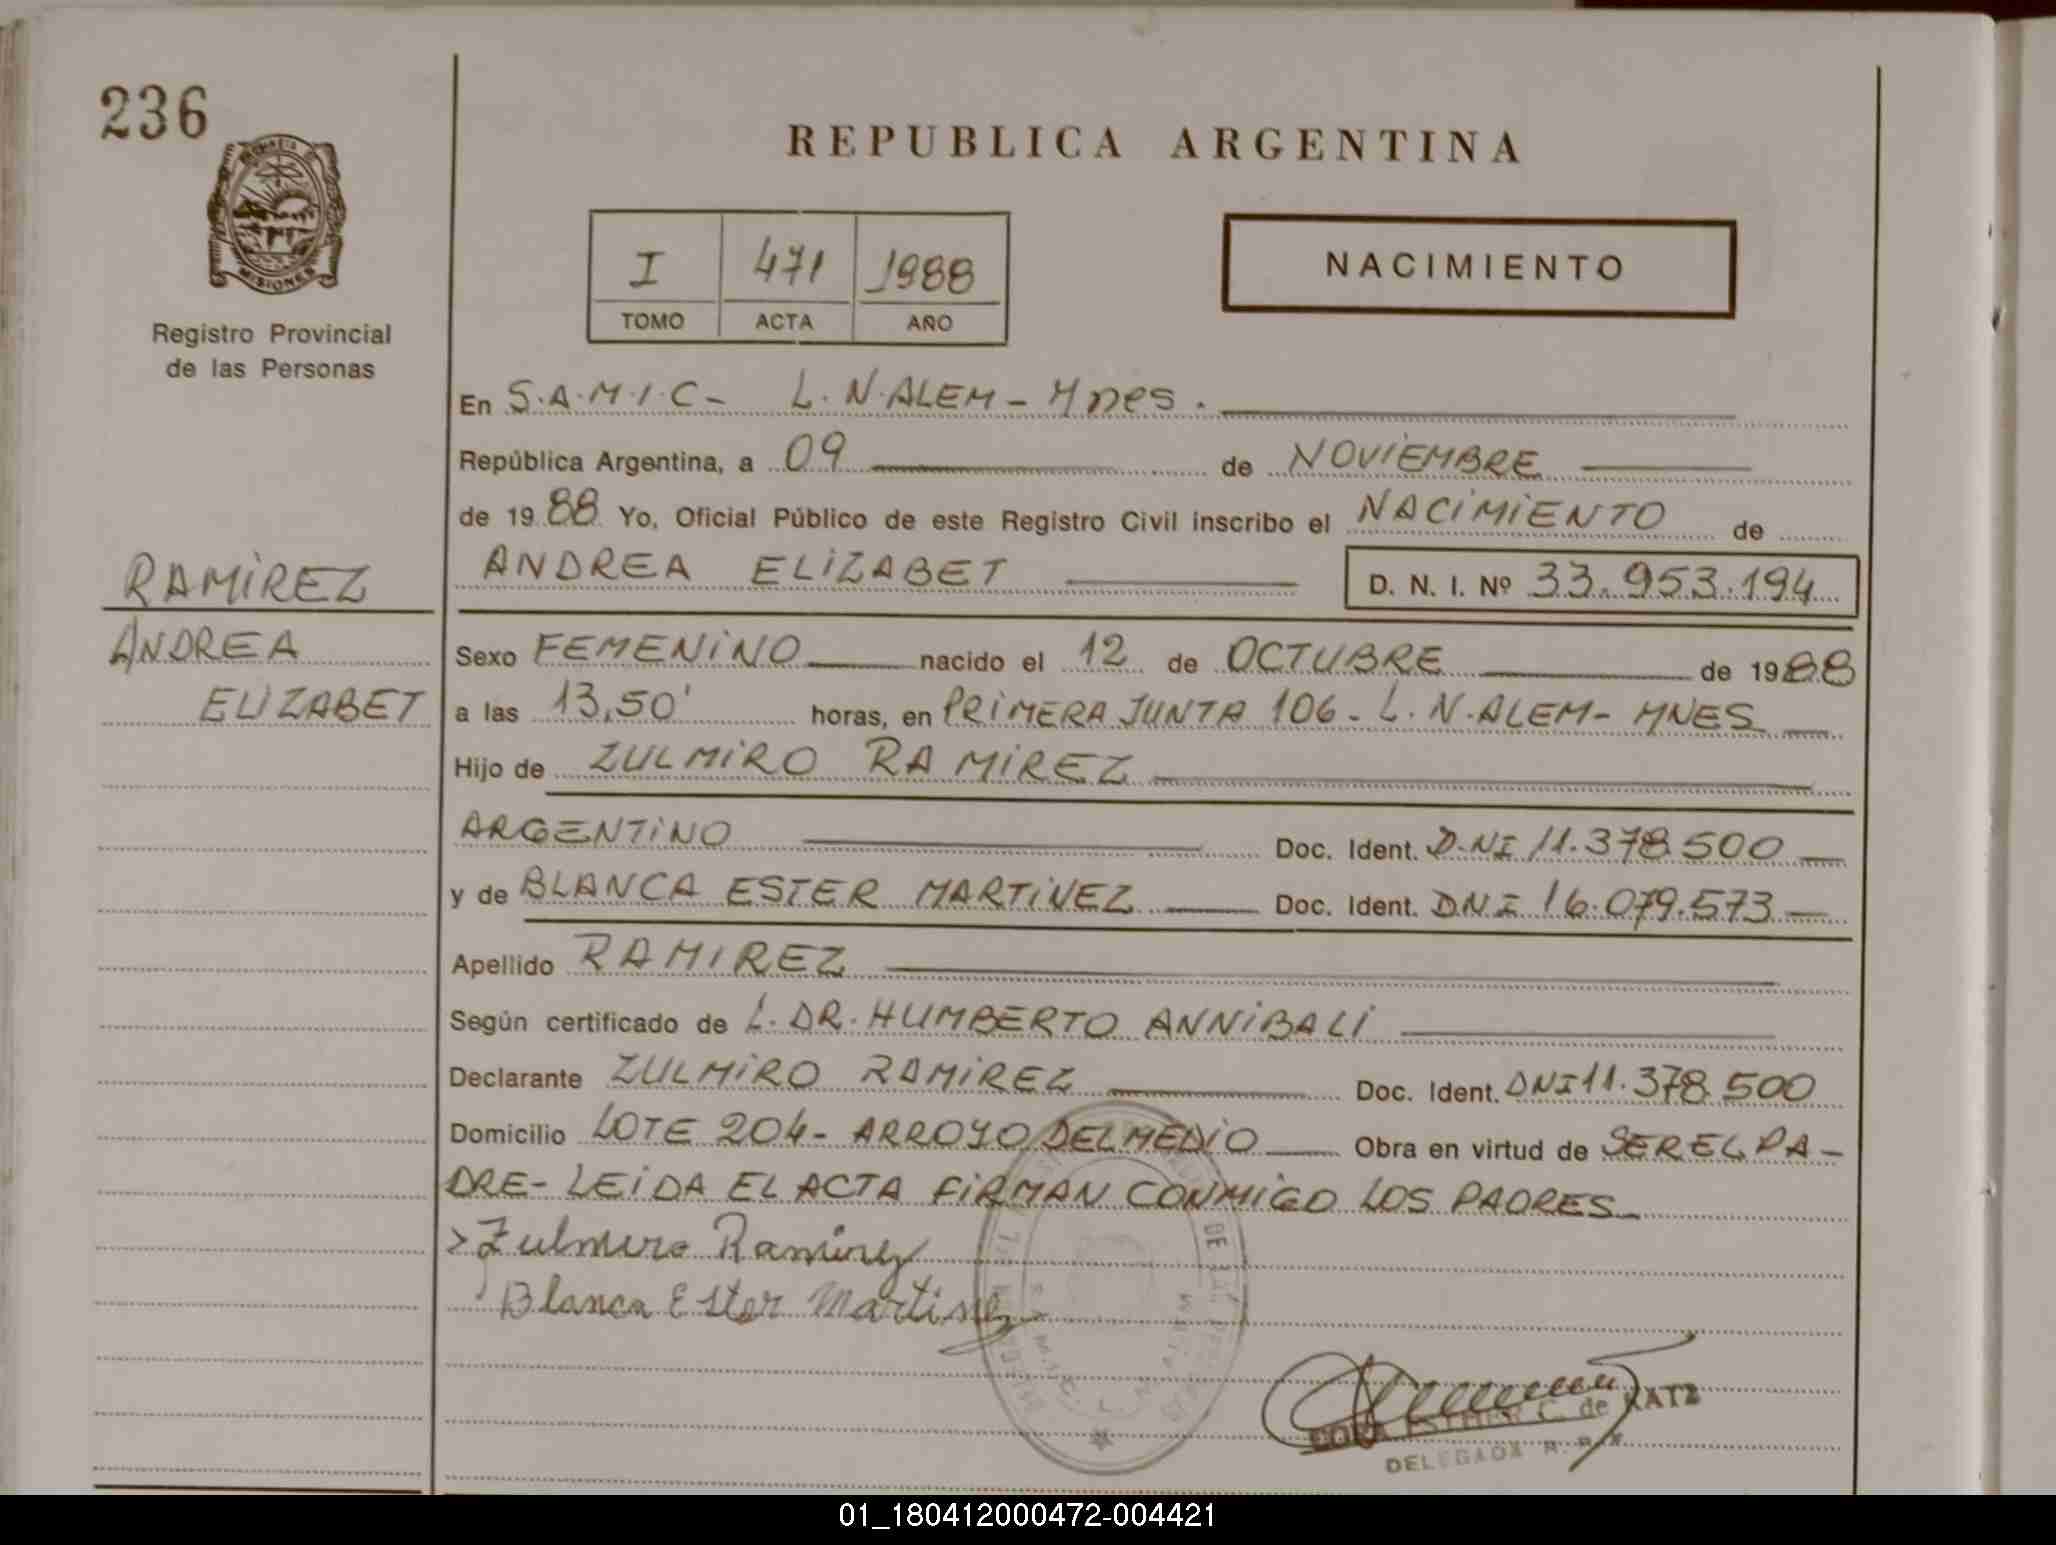 236
REPUBLICA ARGENTINA
MISIONES
Registro Provincial
de las Personas
I 471 1988
TOMO ACTA AÑO
NACIMIENTO
En S.A.M.I.C- L.N.ALEM - Mnes.
República Argentina, a 09 de NOVIEMBRE
de 1988 Yo, Oficial Público de este Registro Civil inscribo el NACIMIENTO de
ANDREA ELIZABET D. N. I. Nº 33.953.194
RAMIREZ
ANDREA
ELIZABET
Sexo FEMENINO nacido el 12 de OCTUBRE de 1988
a las 13,50' horas, en PRIMERA JUNTA 106- L.N.ALEM- MNES
Hijo de ZULMIRO RAMIREZ
ARGENTINO Doc. Ident. D.NI 11.378.500
y de BLANCA ESTER MARTINEZ Doc. Ident. DNI 16.079.573
Apellido RAMIREZ
Según certificado de L. DR. HUMBERTO ANNIBALI
Declarante ZULMIRO RAMIREZ Doc. Ident. DNI 11.378.500
Domicilio LOTE 204- ARROYO DEL MEDIO Obra en virtud de SER EL PA-
DRE- LEIDA EL ACTA FIRMAN CONMIGO LOS PADRES
Zulmiro Ramirez
Blanca Ester Martinez
ESTHER C. de KATZ
DELEGADA
01_180412000472-004421